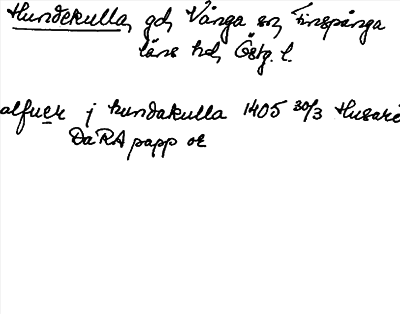 Hundekulla, gd, Vånga sn, Finspånga
läns hd, Östg. l.
alfuer j hundakulla 1405 30/3 Husarö
DaRA papp or